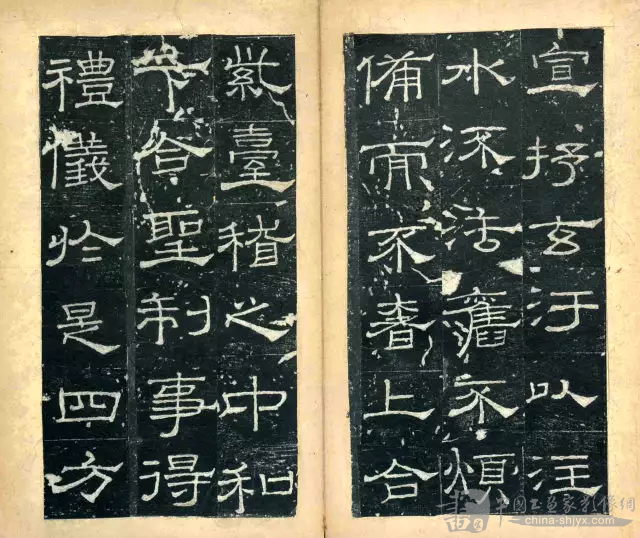 宣抒玄汙以注
水流法舊不煩
備而不奢上合
紫臺稽之中和
下合聖制事得
禮儀於是四方
china-shjyx.com